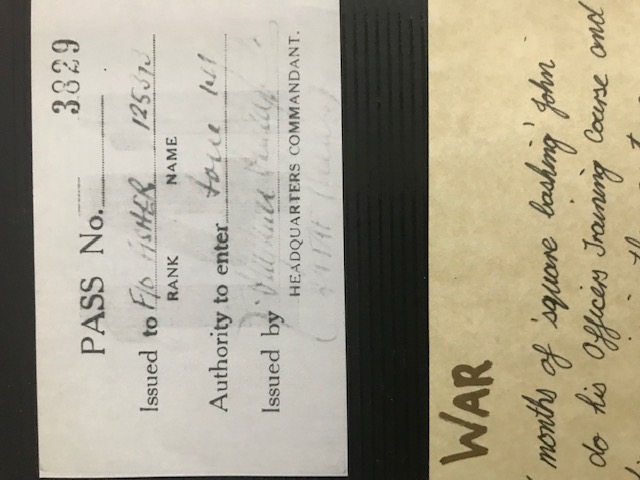 3829
PASS No.
Issued to F/O FISHER 125313
RANK NAME
Authority to enter Zone 1-11
Issued by
HEADQUARTERS COMMANDANT.
WAR
months of 'square bashing' John
do his Officers Training Course and